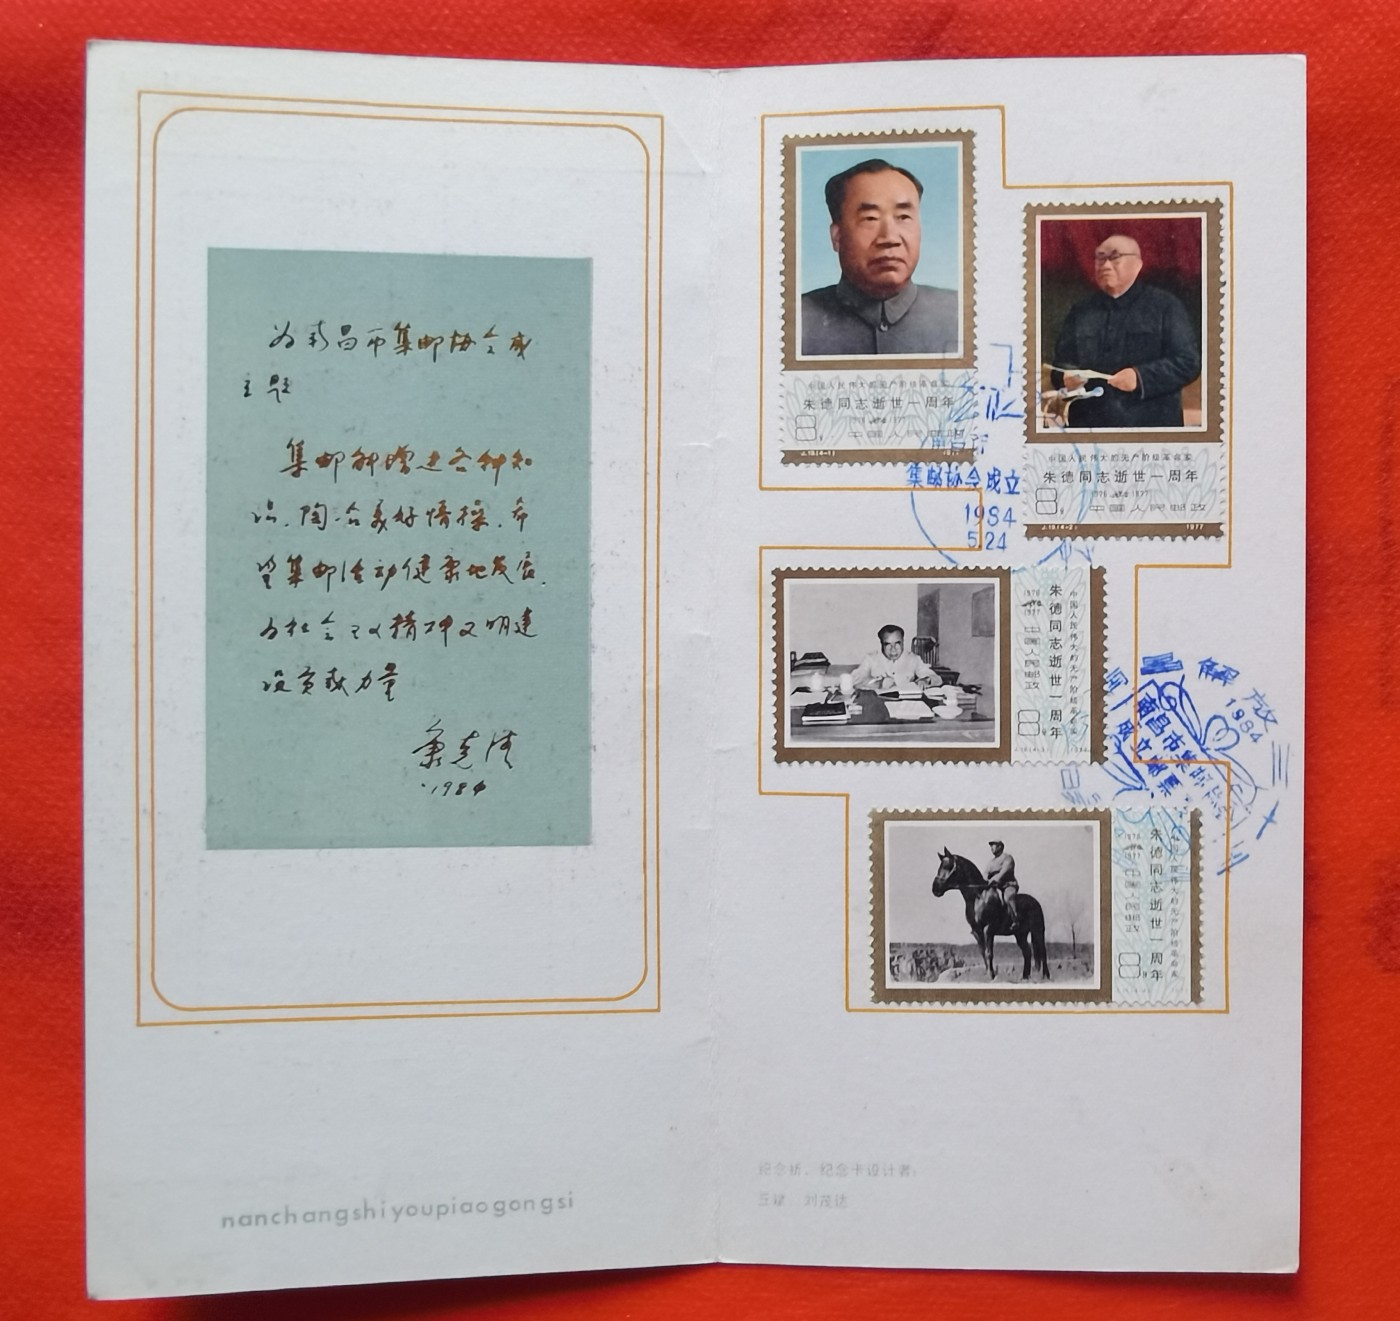 为南昌市集邮协会成
立题
集邮能增进各种知
识、陶冶美好情操、希
望集邮活动健康地发展、
为社会主义精神文明建
设贡献力量
康克清
1984
nanchangshiyoupiaogongsi
中国人民伟大的无产阶级革命家
朱德同志逝世一周年
8分
中国人民邮政
J.19(4-1)
1977
中国人民伟大的无产阶级革命家
朱德同志逝世一周年
1976 1977
8分
中国人民邮政
J.19(4-2)
1977
集邮协会成立
1984
5.24
中国人民伟大的无产阶级革命家
朱德同志逝世一周年
1976
1977
中国人民邮政
8分
J.19(4-3)
解放
1984
南昌市集邮协会
成立邮票
中国人民伟大的无产阶级革命家
朱德同志逝世一周年
1976
1977
中国人民邮政
8分
纪念封、纪念卡设计者：